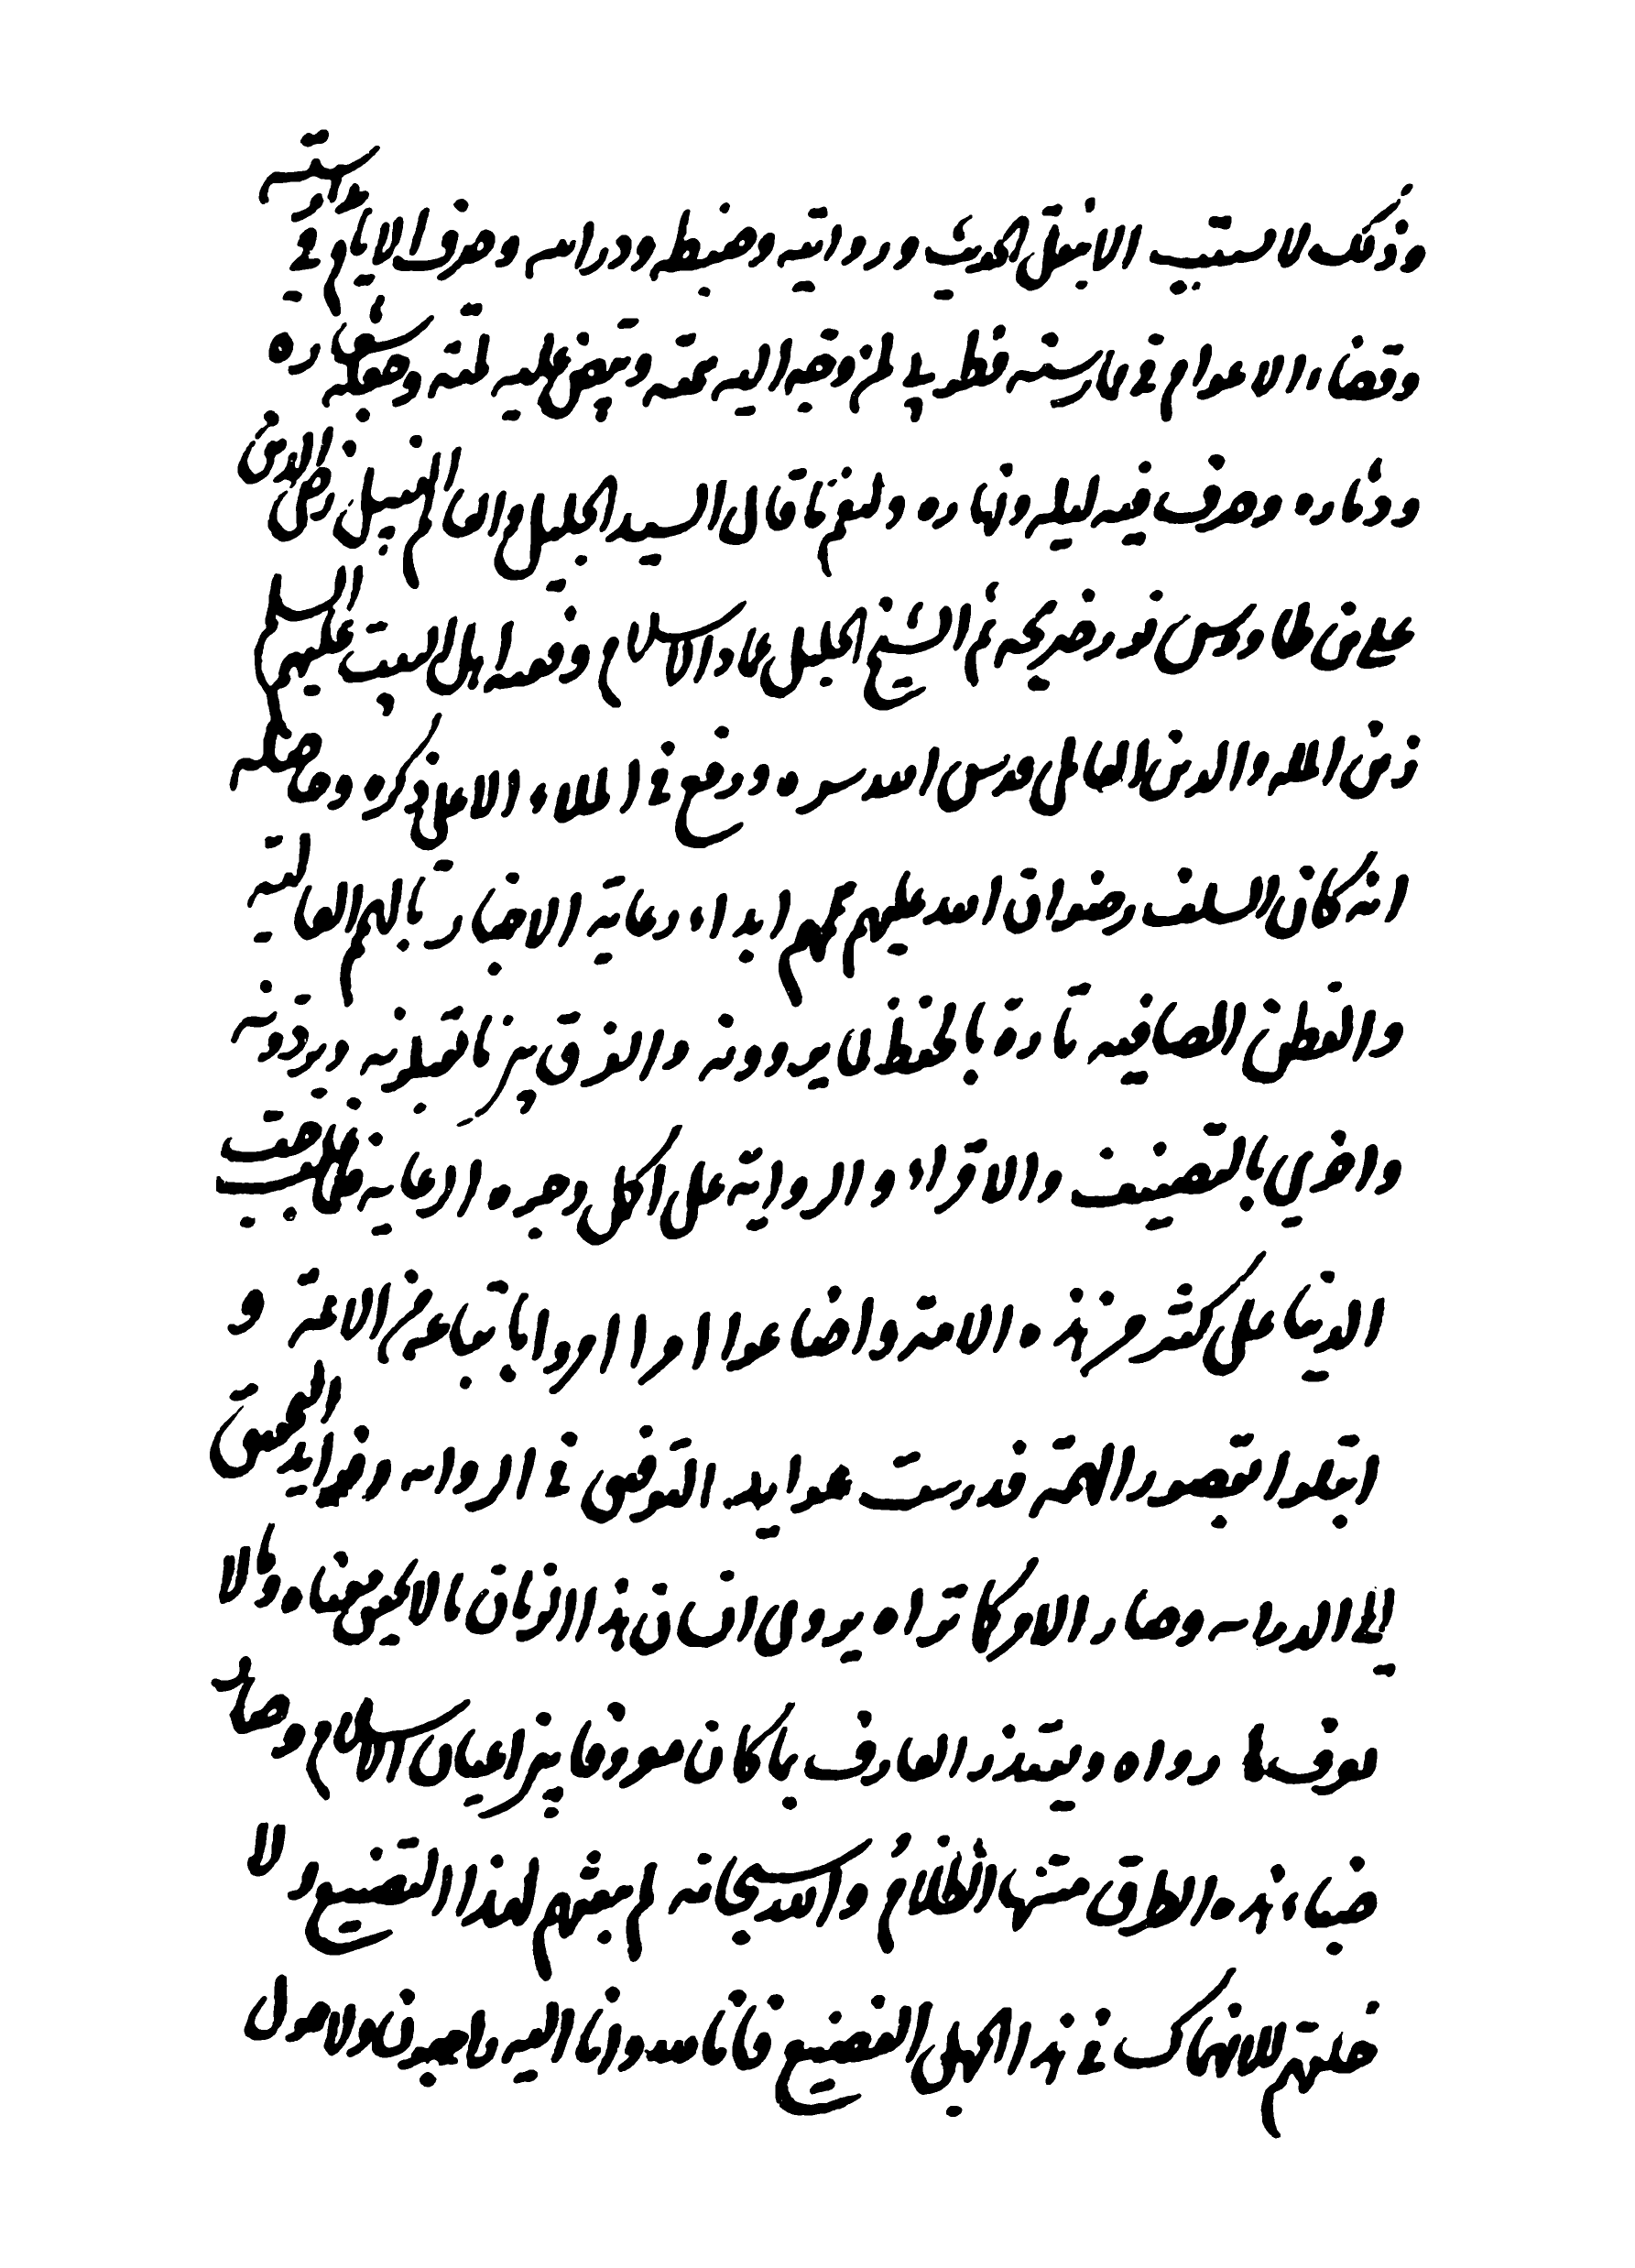 وذلك لا يستتب الا بنقل الحديث وروايته وضبطه ودراسته وصرف الايام في مدارسته
وقضاء الاعوام في ممارسته فطوبى لمن وجه اليه همته وبيض عليه لمته وجعله شعاره
ودثاره وصرف فيه ليله ونهاره ولنعم ما قال السيد الجليل والعالم النبيل رضي الدين
علي بن طاووس نور ضريحه ثم الشيخ الجليل عماد الاسلام وفقيه اهل البيت عليهم السلم
زين المله والدين العاملي قدس الله سره ورفع في الملاء الاعلى ذكره وحاصله
انه كان السلف رضوان الله عليهم همهم ابداء رعاية الاخبار بالهم العالية
والفطن الصافيه تارة بالحفظ لما يروونه والفرق بين ما يقبلونه ويردونه
واخري بالتصنيف والاقراء والرواية على اكمل وجوه الرعايه فغلب حب
الدنيا على كثير من هذه الامة واضاعوا ما امروا باتباعه من الائمة و
ابتلوا بقصور الهمة فدرست عوايد التوفيق في الروايه وفوايد التحقيق
في الدرايه وصار الامر كما تراه يروي انسان هذا الزمان ما لا يحقق معناه ولا
يعرف من رواه ويعتذر العارف بما كان معروفا بين اعيان الاسلام وصار
ضياء هذه الطرق مشتبها بالظلام والله سبحانه لم يبعثهم لهذا التضييع ولا
خلقهم للانهماك في هذا الجهل الفضيع فانا لله وانا اليه راجعون ولا حول